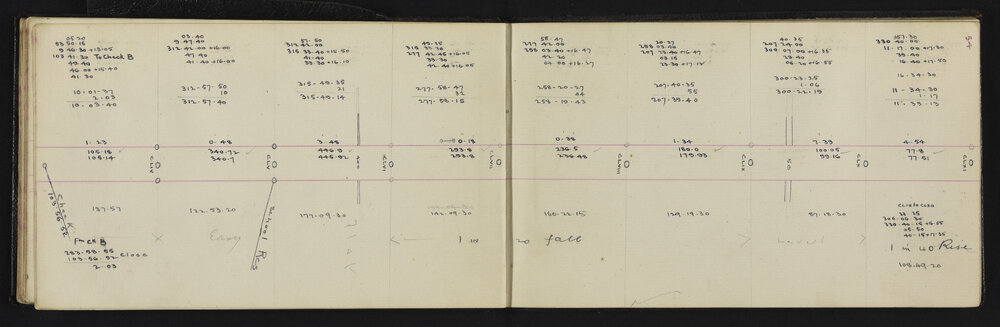 54
05.20
53 50.15
9 46.30 +15.05
103 41.30 To Check B
49.40
46.00 +15.40
41.30
10.01-37
2.03
10.03.40
1.23
105.18
108.14
137.57
Check
103.56.52
Fm ck B
283-58.55
103-56.52 Close
2.03
03.40
9 47.40
312.42.00 +16.00
47.40
41.40 +16.00
312-57.50
10
312-57.40
0.48
340.72
340.7
122-53.20
Easy
School Res
57.50
312 42.00
315 33.40 +15.50
41.40
33.30 +16.10
315-49.35
21
315-49.14
3.48
446.9
445.92
177-09.30
49.35
315 33.30
277 42.45 +16.05
33.30
42.40 +16.05
277-58-47
32
277-58-15
0-18
293.8
293.8
142-09-30
1 in 20 fall
58.47
277 42.00
258 03.40 +16.47
42.20
04.00 +16.27
258-20-27
44
258-19.43
0.38
236.5
236.48
160-22-15
20.27
258 03.40
207 23.40 +16.47
03.15
23.30 +17.12
207-40.35
55
207-39.40
1.34
180.0
179.93
129.19-30
40.35
207-24.00
300 07.00 +16.35
23.40
06.30 +16.55
300-23.25
1-06
300-22-19
7-39
100.05
99.16
87.18.30
Level
157.30
330 40.00
11-17.00 +17.30
39.40
16.40 +17.50
16-34.30
11-34-30
1-17
11-33-13
4-54
77.8
77.51
1 in 40 Rise
108.49.20